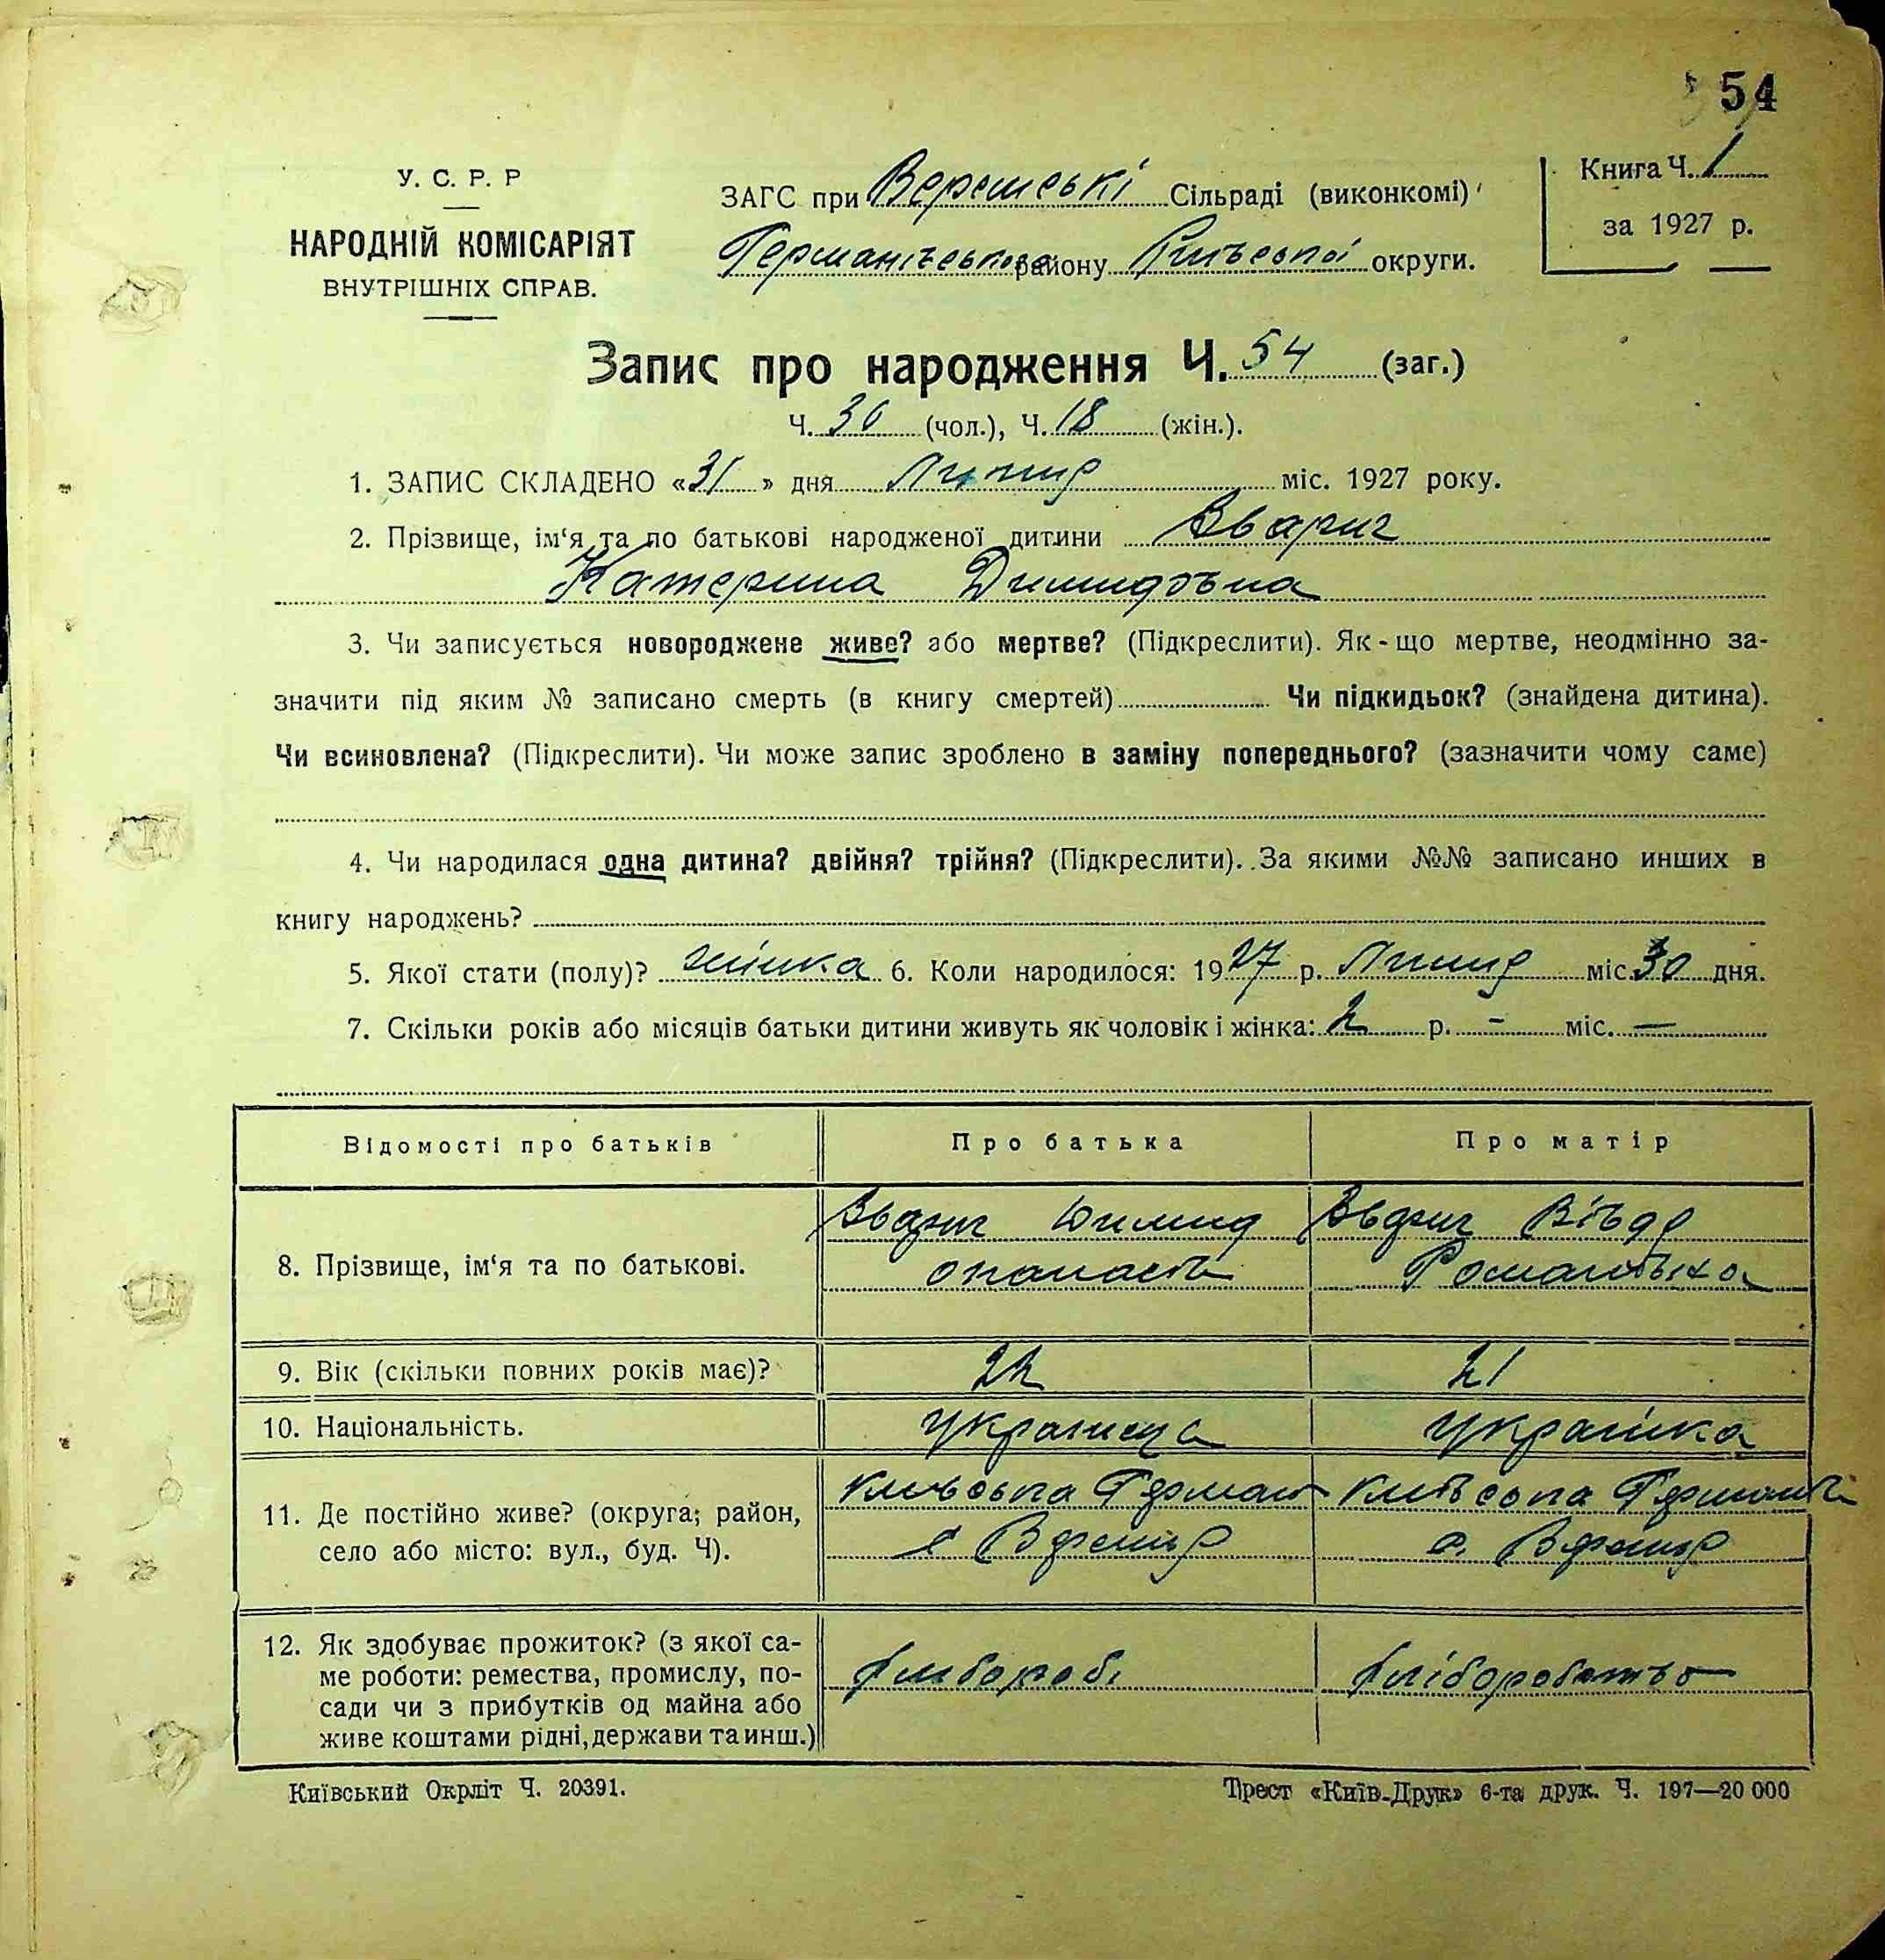 54
У. С. Р. Р
НАРОДНІЙ КОМІСАРІЯТ
ВНУТРІШНІХ СПРАВ.
ЗАГС при Веремські Сільраді (виконкомі)
Германівського району Київської округи.
Книга Ч. 1
за 1927 р.
Запис про народження Ч. 54 (заг.)
Ч. 36 (чол.), Ч. 18 (жін.).
1. ЗАПИС СКЛАДЕНО «31» дня Липня міс. 1927 року.
2. Прізвище, ім‘я та по батькові народженої дитини Зварич
Катерина Димидовна
3. Чи записується новороджене живе? або мертве? (Підкреслити). Як-що мертве, неодмінно за-
значити під яким № записано смерть (в книгу смертей) Чи підкидьок? (знайдена дитина).
Чи всиновлена? (Підкреслити). Чи може запис зроблено в заміну попереднього? (зазначити чому саме)
4. Чи народилася одна дитина? двійня? трійня? (Підкреслити). За якими №№ записано инших в
книгу народжень?
5. Якої стати (полу)? жінка 6. Коли народилося: 1927 р. Липня міс. 30 дня.
7. Скільки років або місяців батьки дитини живуть як чоловік і жінка: 2 р. - міс. —
Відомості про батьків Про батька Про матір
8. Прізвище, ім‘я та по батькові.
Зварич Зварич
Романівна
9. Вік (скільки повних років має)? 22 21
10. Національність. Українець Українка
11. Де постійно живе? (округа; район,
село або місто: вул., буд. Ч).
Київська Герман Київська
с Веремя с. Веремя
12. Як здобуває прожиток? (з якої са-
ме роботи: ремества, промислу, по-
сади чи з прибутків од майна або
живе коштами рідні, держави та инш.)
хлібороб хліборобство
Київський Окрліт Ч. 20391.
Трест «Київ-Друк» 6-та друк. Ч. 197—20 000